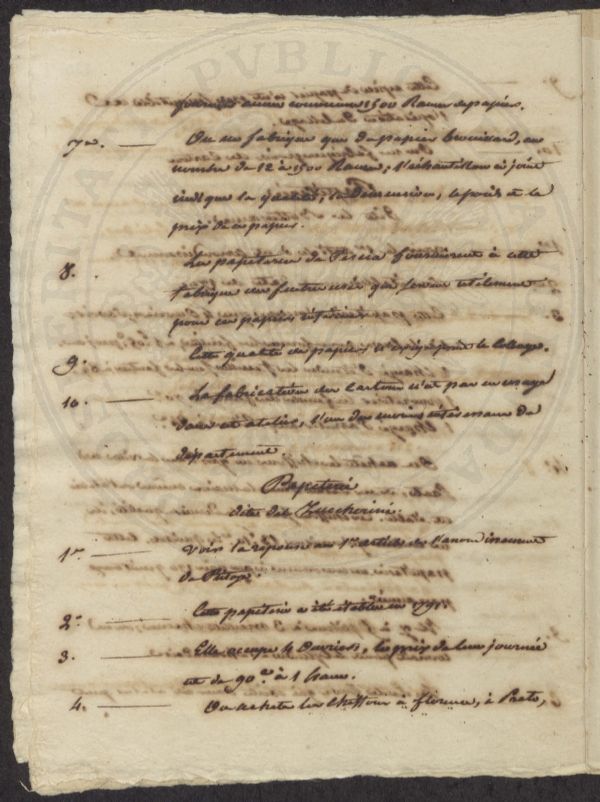 année commune 1500 Rames de papiers.
7me. — On ne fabrique que du papier brouillard, au
nombre de 12 à 1500 Rames; l'échantillon ci joint
indique la qualité, la dimension, le poids et le
prix de ce papier.
8. Les papeteries de Pescia fournissent à cette
fabrique des feutres usés qui servent utilement
pour ces papiers inférieurs.
9. Cette qualité de papiers n'exige point le Collage.
10. — La fabrication des Cartons n'est pas en usage
dans cet atelier, l'un des moins intéressans du
département
Papeterie
dite del Zuccherini.
1er — Voir la réponse au 1er article de l'arrondissement
de Pistoje.
2e — Cette papeterie a été établie en 1791.
3. — Elle occupe 4 Ouvriers, le prix de leur journée
est de 90c à 1 franc.
4. — On achete les Chiffons à florence, à Prato,